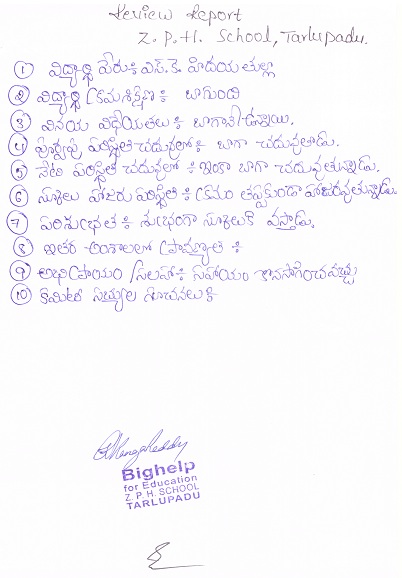 Review Report
Z. P. H. School, Tarlupadu.
① విద్యార్థి పేరు : ఎస్.కె. హిదయతుల్లా
② విద్యార్థి క్రమశిక్షణ : బాగుంది
③ వినయ విధేయతలు : బాగానే ఉన్నాయి.
④ పూర్వపు పరిస్థితి చదువులో : బాగా చదువుతాడు.
⑤ నేటి పరిస్థితి చదువులో : ఇంకా బాగా చదువుతున్నాడు.
⑥ స్కూలు హాజరు పరిస్థితి : క్రమం తప్పకుండా హాజరవుతున్నాడు.
⑦ పరిశుభ్రత : శుభ్రంగా స్కూలుకి వస్తాడు.
⑧ ఇతర అంశాలలో ప్రావీణ్యత :
⑨ అభిప్రాయం / సలహా : సహాయం కొనసాగించవచ్చు
⑩ కమిటీ సభ్యుల సూచనలు :
Bighelp
for Education
Z. P. H. SCHOOL
TARLUPADU